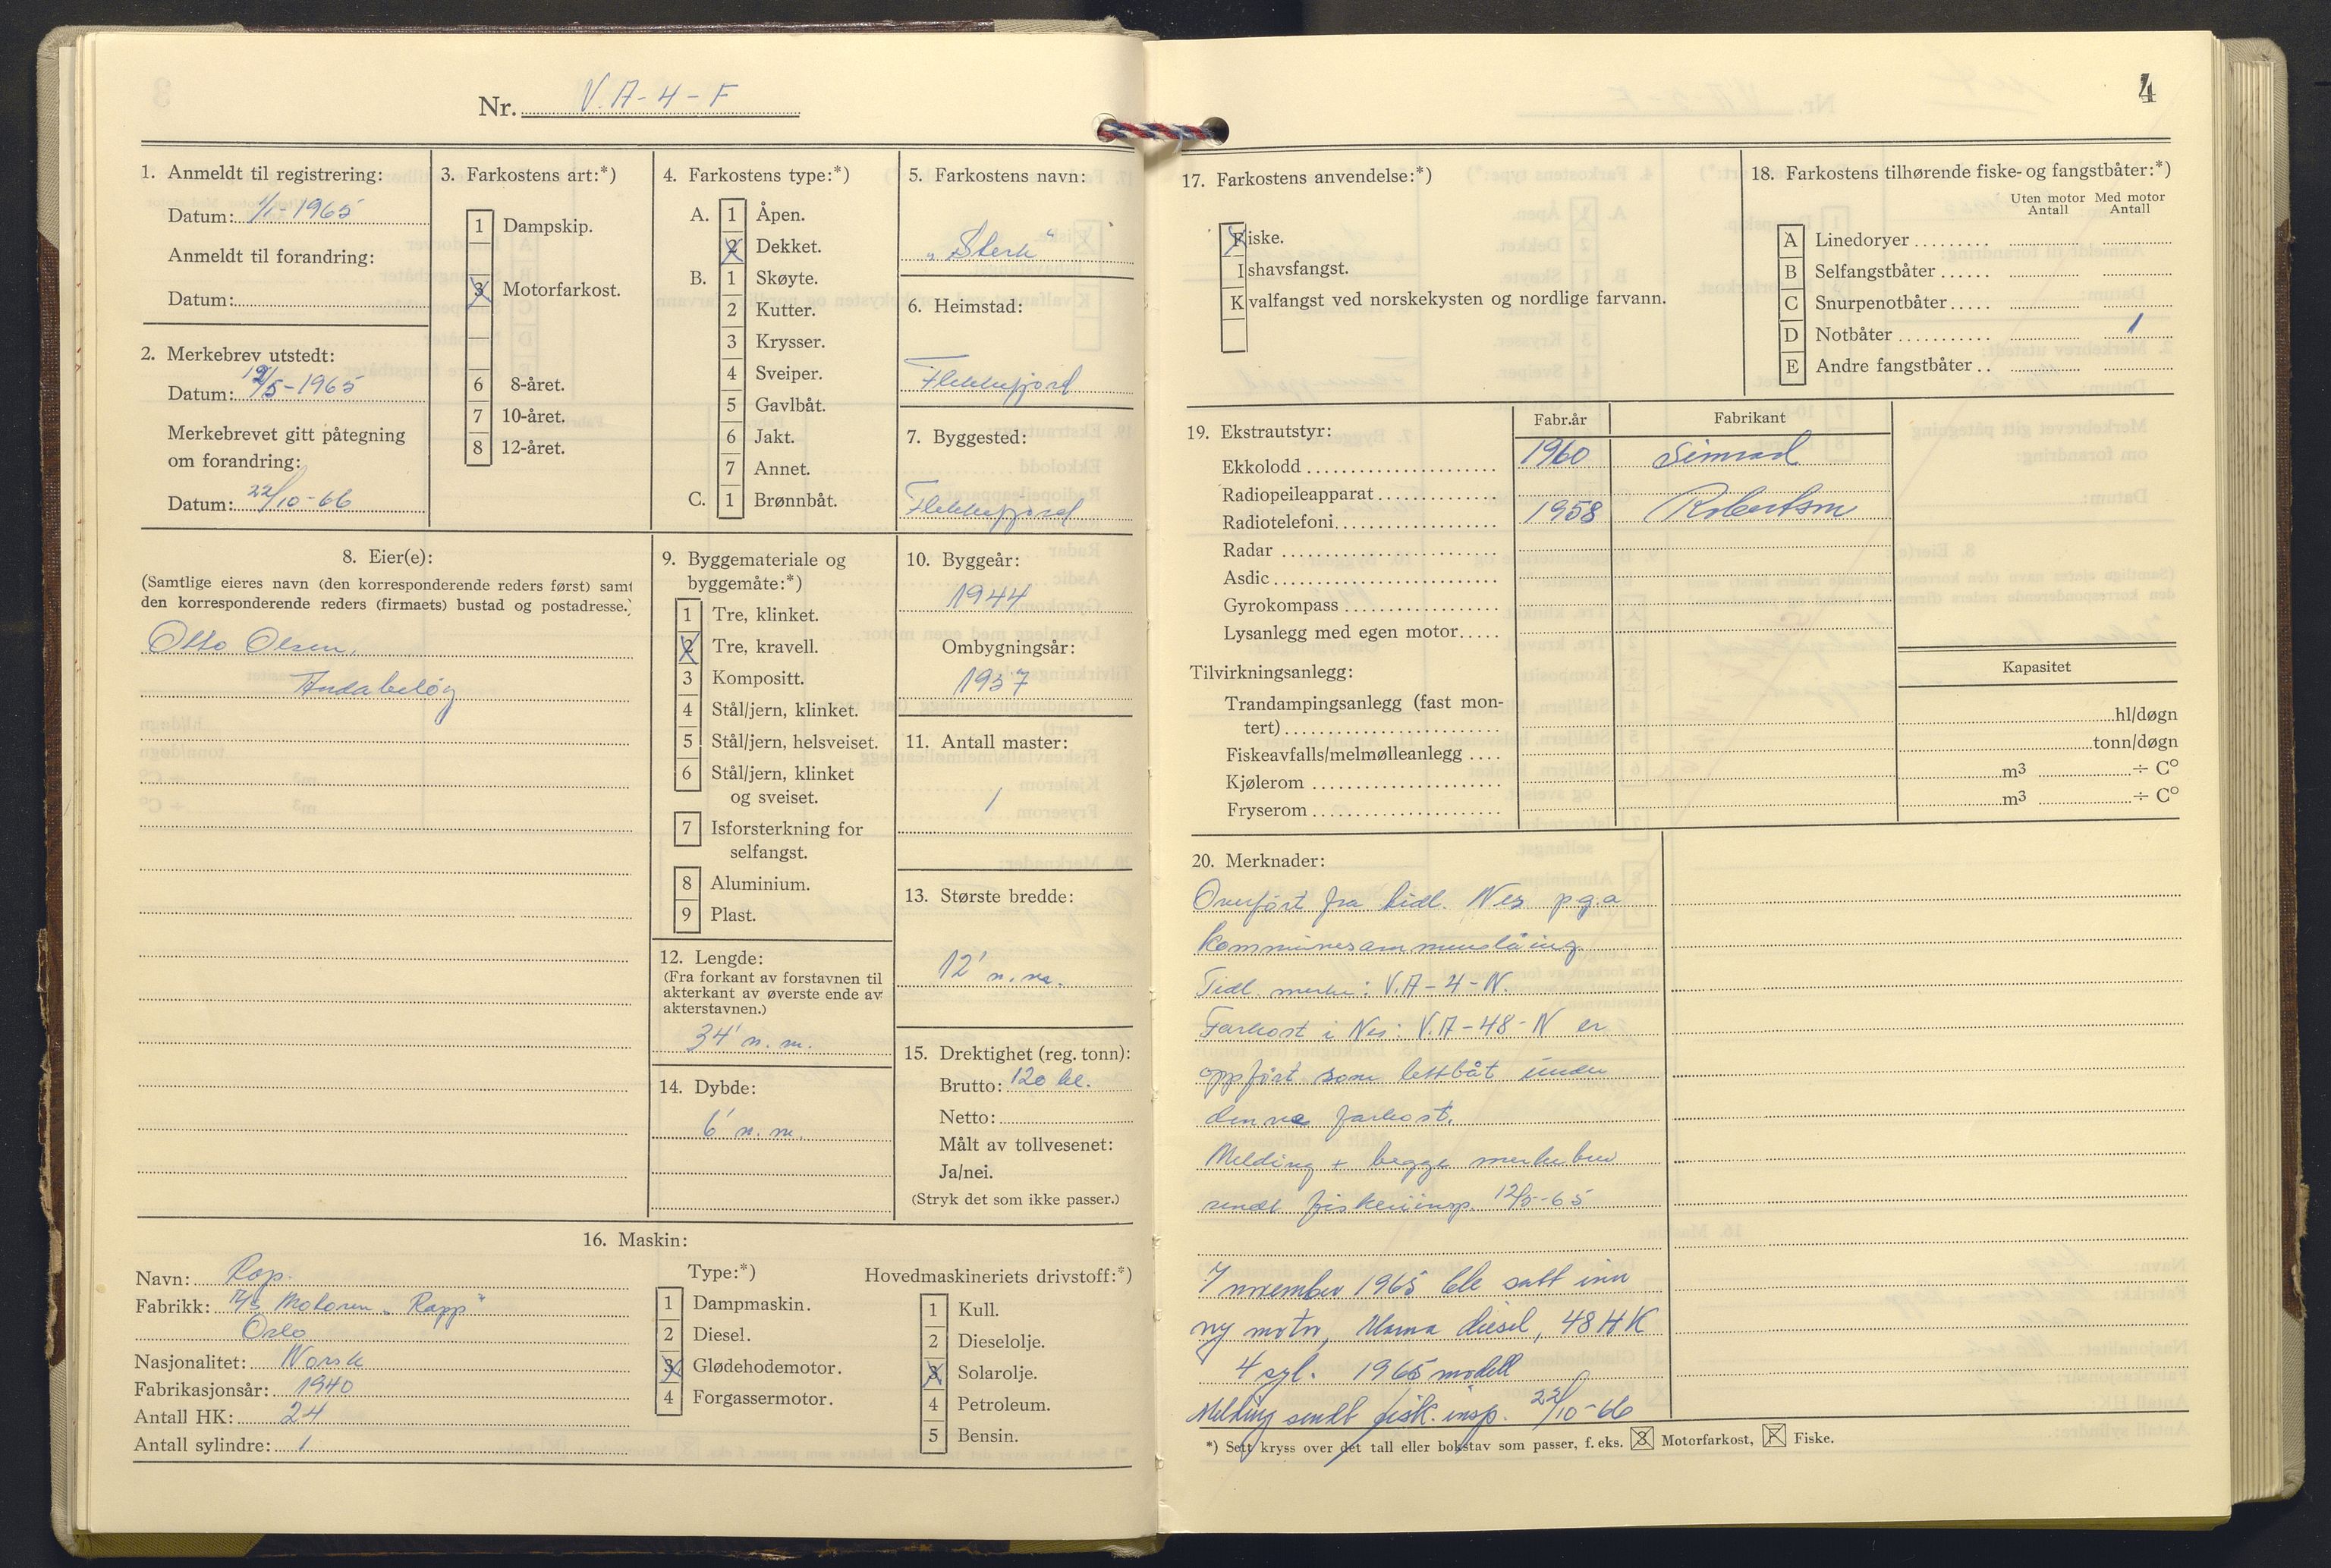 Nr. V.A-4-F
1. Anmeldt til registrering:
Datum: 1/1-1965
Anmeldt til forandring:
Datum:
2. Merkebrev utstedt:
Datum: 12/5-1965
Merkebrevet gitt påtegning
om forandring:
Datum: 22/10-66
3. Farkostens art:*)
1 Dampskip.
3 Motorfarkost.
6 8-året.
7 10-året.
8 12-året.
4. Farkostens type:*)
A. 1 Åpen.
2 Dekket.
B. 1 Skøyte.
2 Kutter.
3 Krysser.
4 Sveiper.
5 Gavlbåt.
6 Jakt.
7 Annet.
C. 1 Brønnbåt.
5. Farkostens navn:
„Sterk"
6. Heimstad:
Flekkefjord
7. Byggested:
Flekkefjord
8. Eier(e):
(Samtlige eieres navn (den korresponderende reders først) samt
den korresponderende reders (firmaets) bustad og postadresse.)
Otto Olsen.
Andabeløy
9. Byggemateriale og
byggemåte:*)
1 Tre, klinket.
2 Tre, kravell.
3 Kompositt.
4 Stål/jern, klinket.
5 Stål/jern, helsveiset.
6 Stål/jern, klinket
og sveiset.
7 Isforsterkning for
selfangst.
8 Aluminium.
9 Plast.
10. Byggeår:
1944
Ombygningsår:
1957
11. Antall master:
1
12. Lengde:
(Fra forkant av forstavnen til
akterkant av øverste ende av
akterstavnen.)
34' n.m.
13. Største bredde:
12' n.m.
14. Dybde:
6' n.m.
15. Drektighet (reg. tonn):
Brutto: 120 hl.
Netto:
Målt av tollvesenet:
Ja/nei.
(Stryk det som ikke passer.)
16. Maskin:
Navn: Rap.
Fabrikk: A/S Motoren „Rapp"
Oslo
Nasjonalitet: Norsk
Fabrikasjonsår: 1940
Antall HK: 24
Antall sylindre: 1
Type:*)
1 Dampmaskin.
2 Diesel.
3 Glødehodemotor.
4 Forgassermotor.
Hovedmaskineriets drivstoff:*)
1 Kull.
2 Dieselolje.
3 Solarolje.
4 Petroleum.
5 Bensin.
4
17. Farkostens anvendelse:*)
Fiske.
Ishavsfangst.
Kvalfangst ved norskekysten og nordlige farvann.
18. Farkostens tilhørende fiske- og fangstbåter:*)
Uten motor Med motor
Antall Antall
A Linedoryer
B Selfangstbåter
C Snurpenotbåter
D Notbåter 1
E Andre fangstbåter
19. Ekstrautstyr:
Fabr.år Fabrikant
Ekkolodd 1960 Simrad
Radiopeileapparat
Radiotelefoni 1958 Robertson
Radar
Asdic
Gyrokompass
Lysanlegg med egen motor
Tilvirkningsanlegg:
Kapasitet
Trandampingsanlegg (fast mon-
tert) hl/døgn
Fiskeavfalls/melmølleanlegg tonn/døgn
Kjølerom m³ ÷ C°
Fryserom m³ ÷ C°
20. Merknader:
Overført fra tidl. Nes p.g.a
kommunesammenslåing.
Tidl. merke: V.A-4-N.
Farkost i Nes: V.A-48-N er
oppført som lettbåt under
denne farkost.
Melding + begge merkebrev
sendt fiskeriinsp. 12/5-65
I november 1965 ble satt inn
ny motor, Marna diesel, 48 HK
4 syl. 1965 modell
Melding sendt fisk. insp. 22/10-66
*) Sett kryss over det tall eller bokstav som passer, f. eks. 3 Motorfarkost, F Fiske.